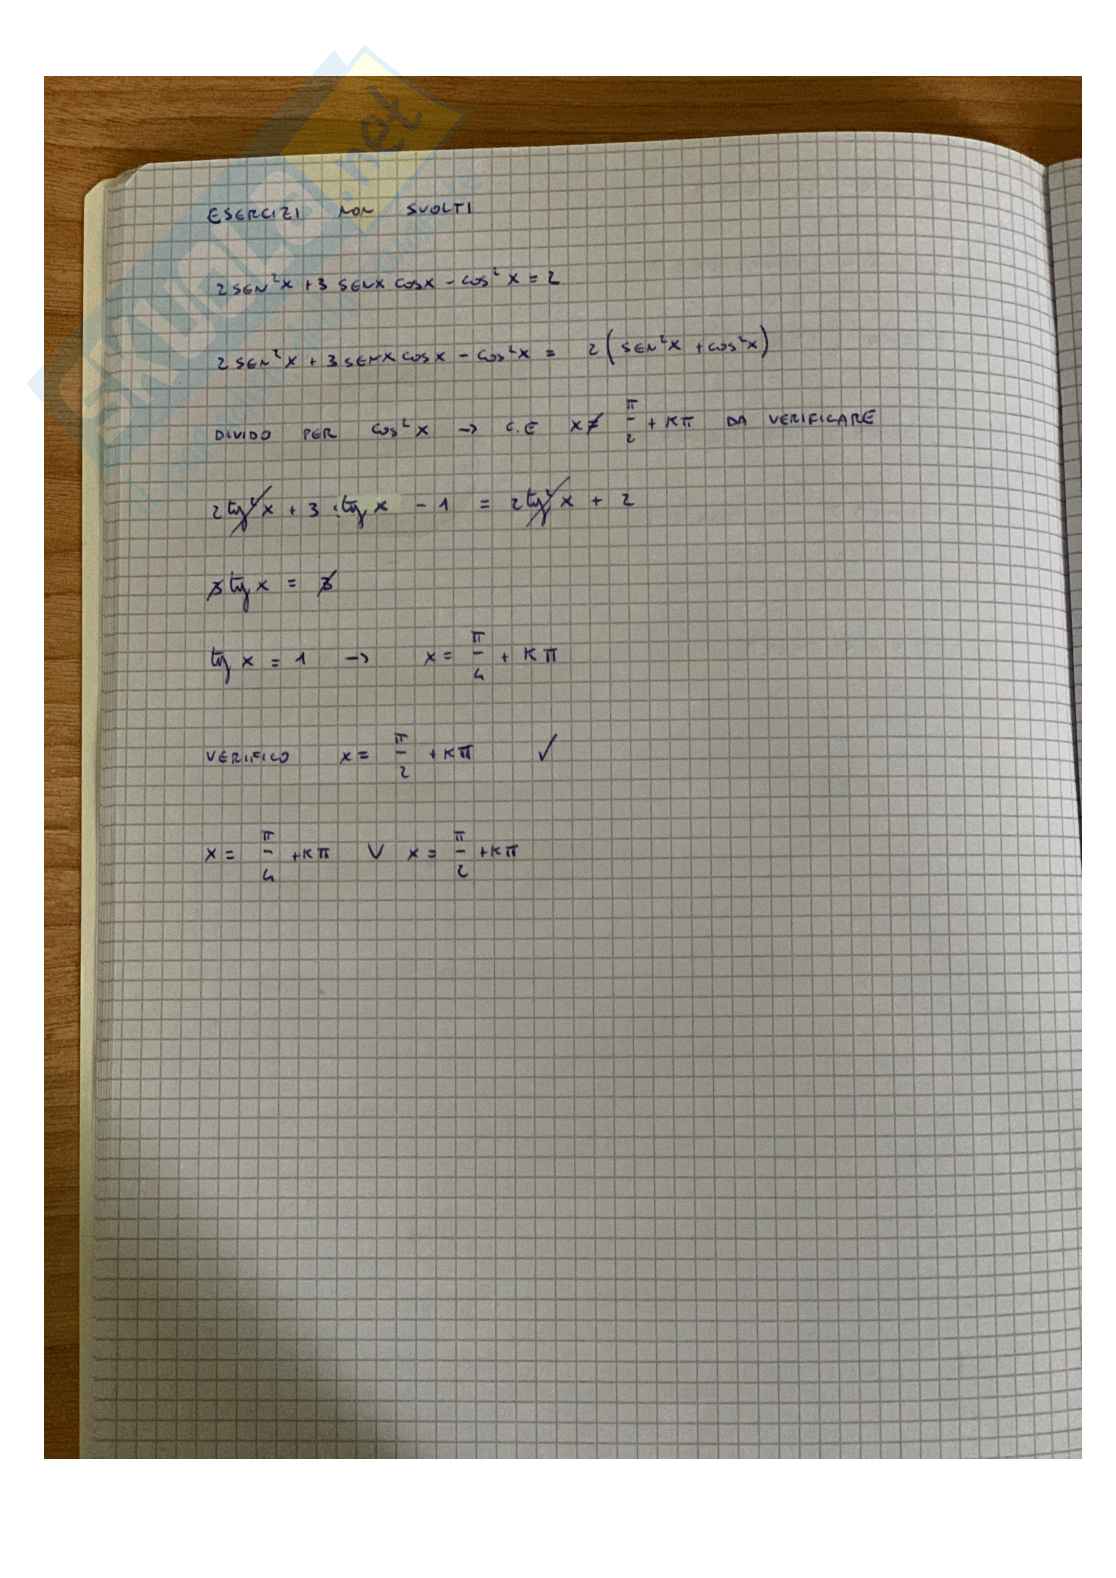 SKUOLA.net
ESERCIZI NON SVOLTI
2 SEN²x + 3 SENx cosx - cos²x = 2
2 SEN²x + 3 SENx cosx - cos²x = 2 (SEN²x + cos²x)
DIVIDO PER cos²x → C.E x ≠ π/2 + Kπ DA VERIFICARE
2 tg²x + 3 tg x - 1 = 2 tg²x + 2
3 tg x = 3
tg x = 1 → x = π/4 + Kπ
VERIFICO x = π/2 + Kπ ✓
x = π/4 + Kπ V x = π/2 + Kπ